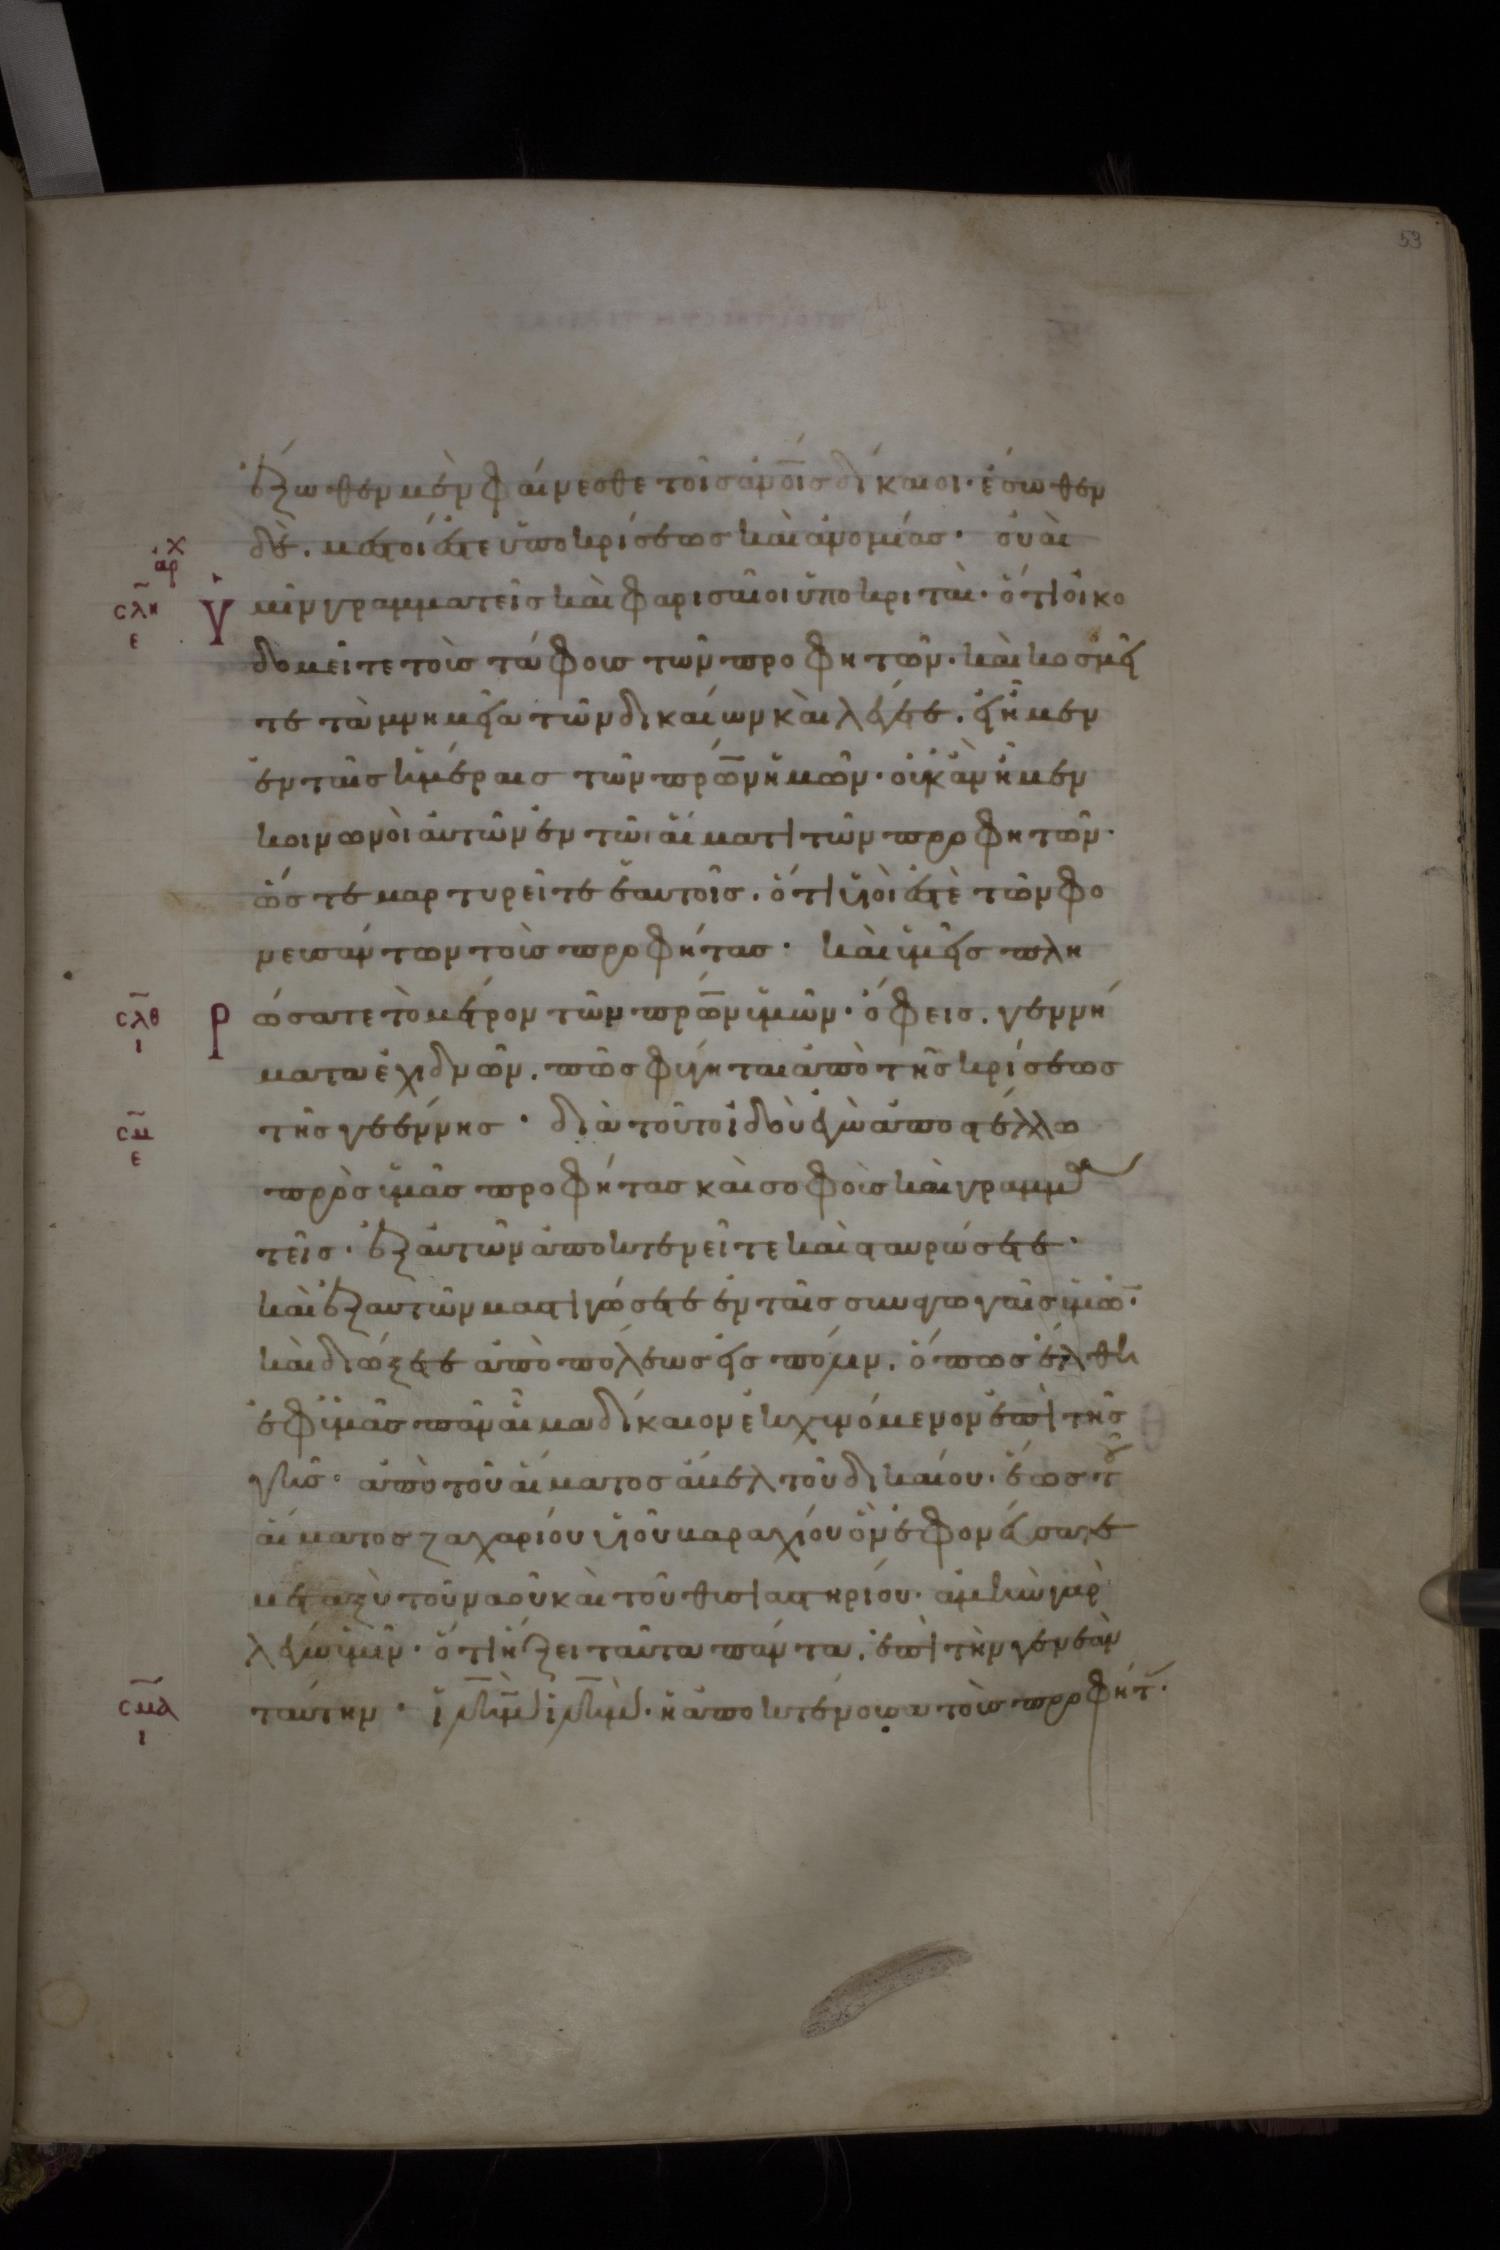 53
ἔξωθεν μὲν φαίνεσθε τοῖς ἀνοῖς δίκαιοι· ἔσωθεν
δὲ. μεστοί ἐστε ὑποκρίσεως καὶ ἀνομίας· οὐαὶ
χ
αρ
σλη
ε
Υ μῖν γραμματεῖς καὶ φαρισαῖοι ὑποκριταὶ· ὅτι οἰκο
δομεῖτε τοὺς τάφους τῶν προφητῶν· καὶ κοσμεῖ
τε τὰ μνημεῖα τῶν δικαίων καὶ λέγετε. εἰ ἦμεν
ἐν ταῖς ἡμέραις τῶν πρῶν ἡμῶν· οὐκ ἂν ἦμεν
κοινωνοὶ αὐτῶν ἐν τῶι αἵματι τῶν προφητῶν·
ὥστε μαρτυρεῖτε ἑαυτοῖς. ὅτι υἱοὶ ἐστὲ τῶν φο
νευσάντων τοὺς προφήτας· καὶ ὑμεῖς πλη
σλθ
ι
Ρ ώσατε τὸ μέτρον τῶν πρῶν ὑμῶν· ὄφεις. γεννή
ματα ἐχιδνῶν. πῶς φύγηται ἀπὸ τῆς κρίσεως
σμ
ε
τῆς γεέννης· διὰ τοῦτο ἰδοὺ ἐγὼ ἀποστέλλω
πρὸς ὑμᾶς προφήτας καὶ σοφοὺς καὶ γραμμα
τεῖς· ἐξ αὐτῶν ἀποκτενεῖτε καὶ σταυρώσετε·
καὶ ἐξ αυτῶν μαστιγώσετε ἐν ταῖς συναγωγαῖς ὑμῶ·
καὶ διώξετε ἀπὸ πόλεως εἰς πόλιν. ὅπως ἔλθη
ἐφ ὑμᾶς πᾶν αἷμα δίκαιον ἐκχυνόμενον ἐπὶ τῆς
γῆς· ἀπὸ τοῦ αἵματος ἄβελ τοῦ δικαίου. ἕως τοῦ
αἵματος ζαχαρίου υἱοῦ βαραχίου ὃν ἐφονεύσατε
μεταξὺ τοῦ ναοῦ καὶ τοῦ θυσιαστηρίου· ἀμὴν γὰρ
λέγω ὑμῖν· ὅτι ἥξει ταῦτα πάντα. ἐπὶ τὴν γενεὰν
σμα
ι
ταύτην· ἱλημ ἱλημ· ἡ ἀποκτένουσα τοὺς προφήτ·